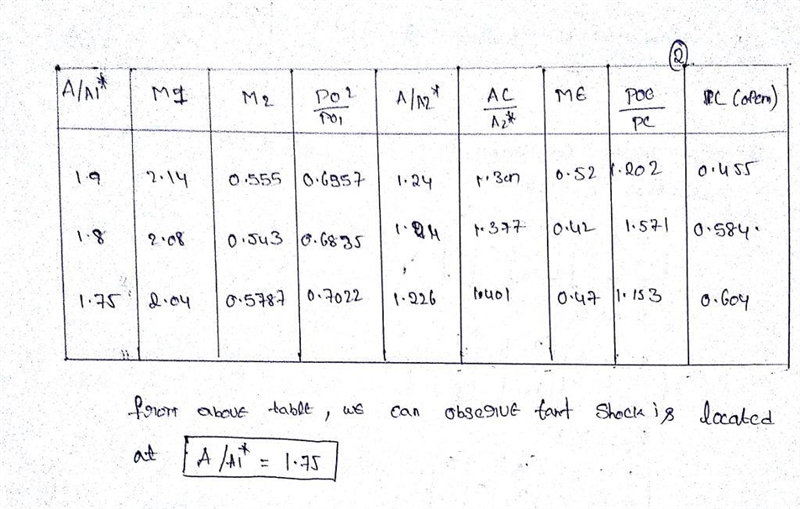 ②
A/A1* M1 M2 PO2/PO1 A/A2* AC/A2* ME POE/PC PC (atm)
1.9 2.14 0.555 0.6957 1.24 0.52 1.202 0.455
1.8 2.08 0.543 0.6835 1.24 1.377 0.42 1.571 0.584
1.75 2.04 0.5787 0.7022 1.226 1.401 0.47 1.153 0.604
from above table, we can obserue tant shock is located
at A/A1* = 1.75